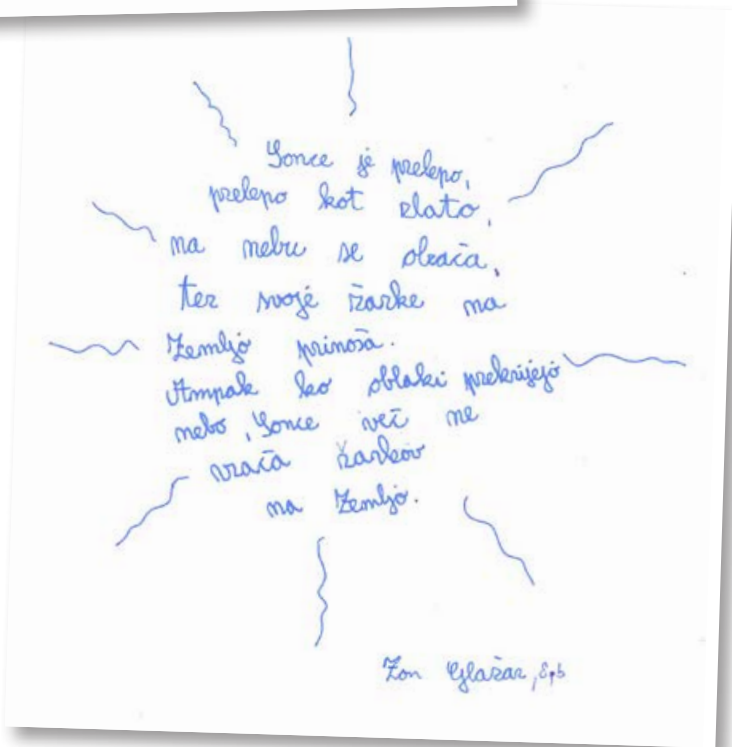 Sonce je prelepo,
prelepo kot zlato,
na nebu se obrača,
ter svoje žarke na
Zemljo prinoša.
Ampak ko oblaki prekrijejo
nebo, Sonce več ne
vrača žarkov
na Zemljo.
Glažar,